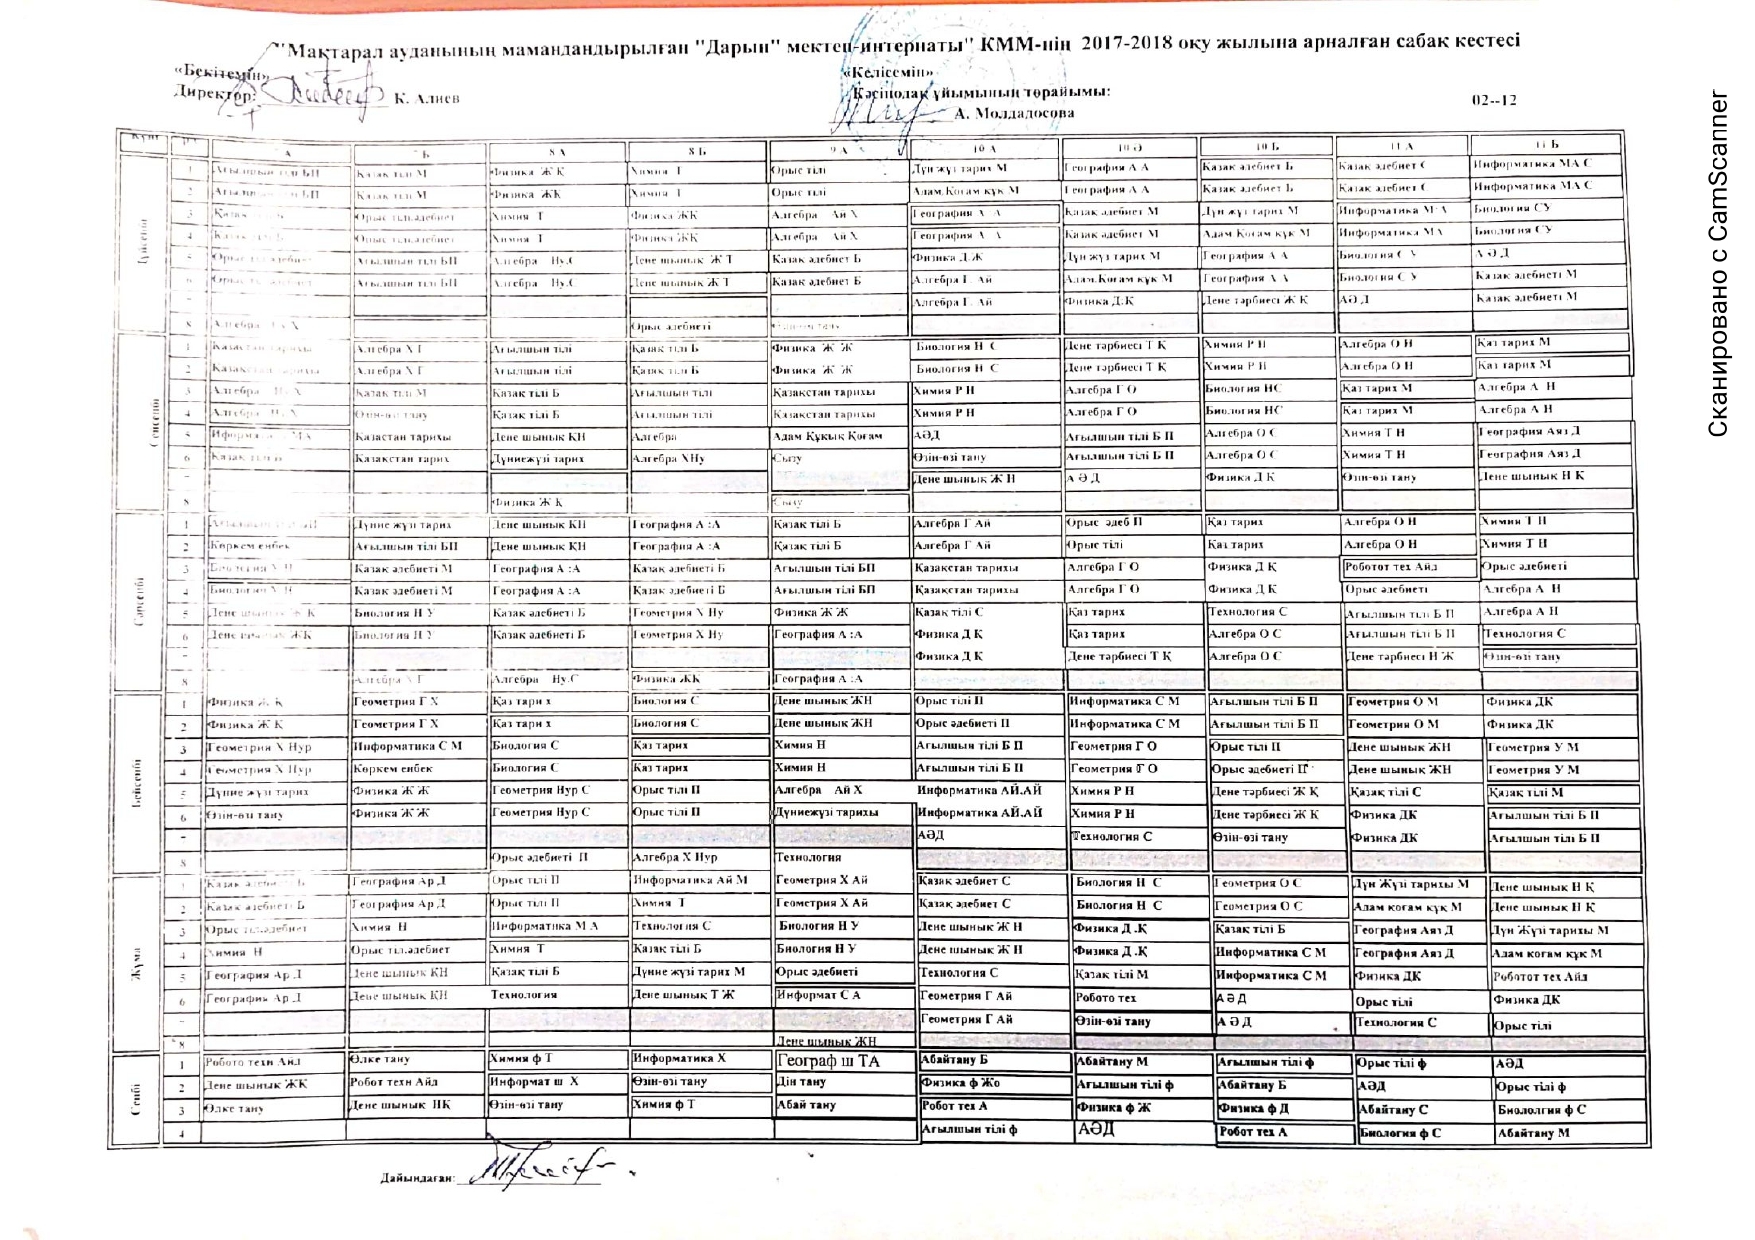 "Мақтарал ауданының мамандандырылған "Дарын" мектеп-интернаты" КММ-нің 2017-2018 оқу жылына арналған сабақ кестесі
«Бекітемін» «Келісемін»
Директор: К. Алиев Кәсіподақ ұйымының төрайымы:
А. Молдадосова 02--12
8 А 8 Б 9 А 10 А 10 Ә 10 Б 11 А 11 Б
1 Ағылшын тіл БП Қазақ тіл М Физика Ж Қ Химия Т Орыс тілі Дүн жүз тарих М География А А Қазақ әдебиет Б Қазақ әдебиет С Информатика МА С
2 Ағылшын тіл БП Қазақ тіл М Физика ЖҚ Химия Т Орыс тілі Адам.Қоғам құқ М География А А Қазақ әдебиет Б Қазақ әдебиет С Информатика МА С
3 Орыс тіл.әдебиет Химия Т Физика ЖҚ Алгебра Ай Х География А А Қазақ әдебиет М Дүн жүз тарих М Информатика М А Биология СУ
4 Орыс тіл.әдебиет Химия Т Физика ЖҚ Алгебра Ай Х География А А Қазақ әдебиет М Адам Қоғам құқ М Информатика МА Биология СУ
5 Ағылшын тіл БП Алгебра Ну.С Дене шынық Ж Т Қазақ әдебиет Б Физика Д.Ж Дүн жүз тарих М География А А Биология С У А Ә Д
6 Ағылшын тіл БП Алгебра Ну.С Дене шынық Ж Т Қазақ әдебиет Б Алгебра Г. Ай Адам.Қоғам құқ М География А А Биология С У Қазақ әдебиеті М
Алгебра Г. Ай Физика Д.Қ Дене тәрбиесі Ж Қ АӘ Д Қазақ әдебиеті М
8 Орыс әдебиеті
Сейсенбі
1 Қазақстан тарихы Алгебра Х Г Ағылшын тілі Қазақ тіл Б Физика Ж Ж Биология Н С Дене тәрбиесі Т Қ Химия Р Н Алгебра О Н Қаз тарих М
2 Қазақстан тарихы Алгебра Х Г Ағылшын тілі Қазақ тіл Б Физика Ж Ж Биология Н С Дене тәрбиесі Т Қ Химия Р Н Алгебра О Н Қаз тарих М
3 Қазақ тіл М Қазақ тіл Б Ағылшын тілі Қазақстан тарихы Химия Р Н Алгебра Г О Биология НС Қаз тарих М Алгебра А Н
4 Өзін-өзі тану Қазақ тіл Б Ағылшын тілі Қазақстан тарихы Химия Р Н Алгебра Г О Биология НС Қаз тарих М Алгебра А Н
5 Қазастан тарихы Дене шынық ҚН Алгебра Адам Құқық Қоғам АӘД Ағылшын тілі Б П Алгебра О С Химия Т Н География Аяз Д
6 Қазақстан тарих Дүниежүзі тарих Алгебра ХНу Сызу Өзін-өзі тану Ағылшын тілі Б П Алгебра О С Химия Т Н География Аяз Д
Дене шынық Ж Н А Ә Д Физика Д Қ Өзін-өзі тану Дене шынық Н Қ
8 Физика Ж Қ Сызу
Сәрсенбі
1 Дүние жүзі тарих Дене шынық ҚН География А :А Қазақ тілі Б Алгебра Г Ай Орыс әдеб П Қаз тарих Алгебра О Н Химия Т Н
2 Көркем еңбек Ағылшын тілі БП Дене шынық ҚН География А :А Қазақ тілі Б Алгебра Г Ай Орыс тілі Қаз тарих Алгебра О Н Химия Т Н
3 Қазақ әдебиеті М География А :А Қазақ әдебиеті Б Ағылшын тілі БП Қазақстан тарихы Алгебра Г О Физика Д Қ Роботот тех Айд Орыс әдебиеті
4 Қазақ әдебиеті М География А :А Қазақ әдебиеті Б Ағылшын тілі БП Қазақстан тарихы Алгебра Г О Физика Д Қ Орыс әдебиеті Алгебра А Н
5 Дене шынық Ж Қ Биология Н У Қазақ әдебиеті Б Геометрия Х Ну Физика Ж Ж Қазақ тілі С Қаз тарих Технология С Ағылшын тілі Б П Алгебра А Н
6 Дене шынық ЖҚ Биология Н У Қазақ әдебиеті Б Геометрия Х Ну География А :А Физика Д Қ Қаз тарих Алгебра О С Ағылшын тілі Б П Технология С
Физика Д Қ Дене тәрбиесі Т Қ Алгебра О С Дене тәрбиесі Н Ж Өзін-өзі тану
8 Алгебра Х Г Алгебра Ну.С Физика ЖҚ География А :А
Бейсенбі
1 Физика Ж Қ Геометрия Г Х Қаз тари х Биология С Дене шынық ЖН Орыс тілі П Информатика С М Ағылшын тілі Б П Геометрия О М Физика ДК
2 Физика Ж Қ Геометрия Г Х Қаз тари х Биология С Дене шынық ЖН Орыс әдебиеті П Информатика С М Ағылшын тілі Б П Геометрия О М Физика ДК
3 Геометрия Х Нур Информатика С М Биология С Қаз тарих Химия Н Ағылшын тілі Б П Геометрия Г О Орыс тілі П Дене шынық ЖН Геометрия У М
4 Геометрия Х Нур Көркем еңбек Биология С Қаз тарих Химия Н Ағылшын тілі Б П Геометрия Г О Орыс әдебиеті П Дене шынық ЖН Геометрия У М
5 Дүние жүзі тарих Физика Ж Ж Геометрия Нур С Орыс тілі П Алгебра Ай Х Информатика АЙ.АЙ Химия Р Н Дене тәрбиесі Ж Қ Қазақ тілі С Қазақ тілі М
6 Өзін-өзі тану Физика Ж Ж Геометрия Нур С Орыс тілі П Дүниежүзі тарихы Информатика АЙ.АЙ Химия Р Н Дене тәрбиесі Ж Қ Физика ДК Ағылшын тілі Б П
АӘД Технология С Өзін-өзі тану Физика ДК Ағылшын тілі Б П
8 Орыс әдебиеті П Алгебра Х Нур Технология
Жұма
1 География Ар Д Орыс тілі П Информатика Ай М Геометрия Х Ай Қазақ әдебиет С Биология Н С Геометрия О С Дүн Жүзі тарихы М Дене шынық Н Қ
2 Қазақ әдебиеті Б География Ар Д Орыс тілі П Химия Т Геометрия Х Ай Қазақ әдебиет С Биология Н С Геометрия О С Адам қоғам құқ М Дене шынық Н Қ
3 Орыс тіл.әдебиет Химия Н Информатика М А Технология С Биология Н У Дене шынық Ж Н Физика Д .Қ Қазақ тілі Б География Аяз Д Дүн Жүзі тарихы М
4 Химия Н Орыс тіл.әдебиет Химия Т Қазақ тілі Б Биология Н У Дене шынық Ж Н Физика Д .Қ Информатика С М География Аяз Д Адам қоғам құқ М
5 География Ар Д Дене шынық ҚН Қазақ тілі Б Дүние жүзі тарих М Орыс әдебиеті Технология С Қазақ тілі М Информатика С М Физика ДК Роботот тех Айд
6 География Ар Д Дене шынық ҚН Технология Дене шынық Т Ж Информат С А Геометрия Г Ай Робото тех А Ә Д Орыс тілі Физика ДК
Геометрия Г Ай Өзін-өзі тану А Ә Д Технология С Орыс тілі
8 Дене шынық ЖН
Сенбі
1 Робото техн Айд Өлке тану Химия ф Т Информатика Х Географ ш ТА Абайтану Б Абайтану М Ағылшын тілі ф Орыс тілі ф АӘД
2 Дене шынық ЖК Робот техн Айд Информат ш Х Өзін-өзі тану Дін тану Физика ф Жо Ағылшын тілі ф Абайтану Б АӘД Орыс тілі ф
3 Өлке тану Дене шынық НҚ Өзін-өзі тану Химия ф Т Абай тану Робот тех А Физика ф Ж Физика ф Д Абайтану С Биололгия ф С
4 Ағылшын тілі ф АӘД Робот тех А Биология ф С Абайтану М
Дайындаған:
Сканировано с CamScanner